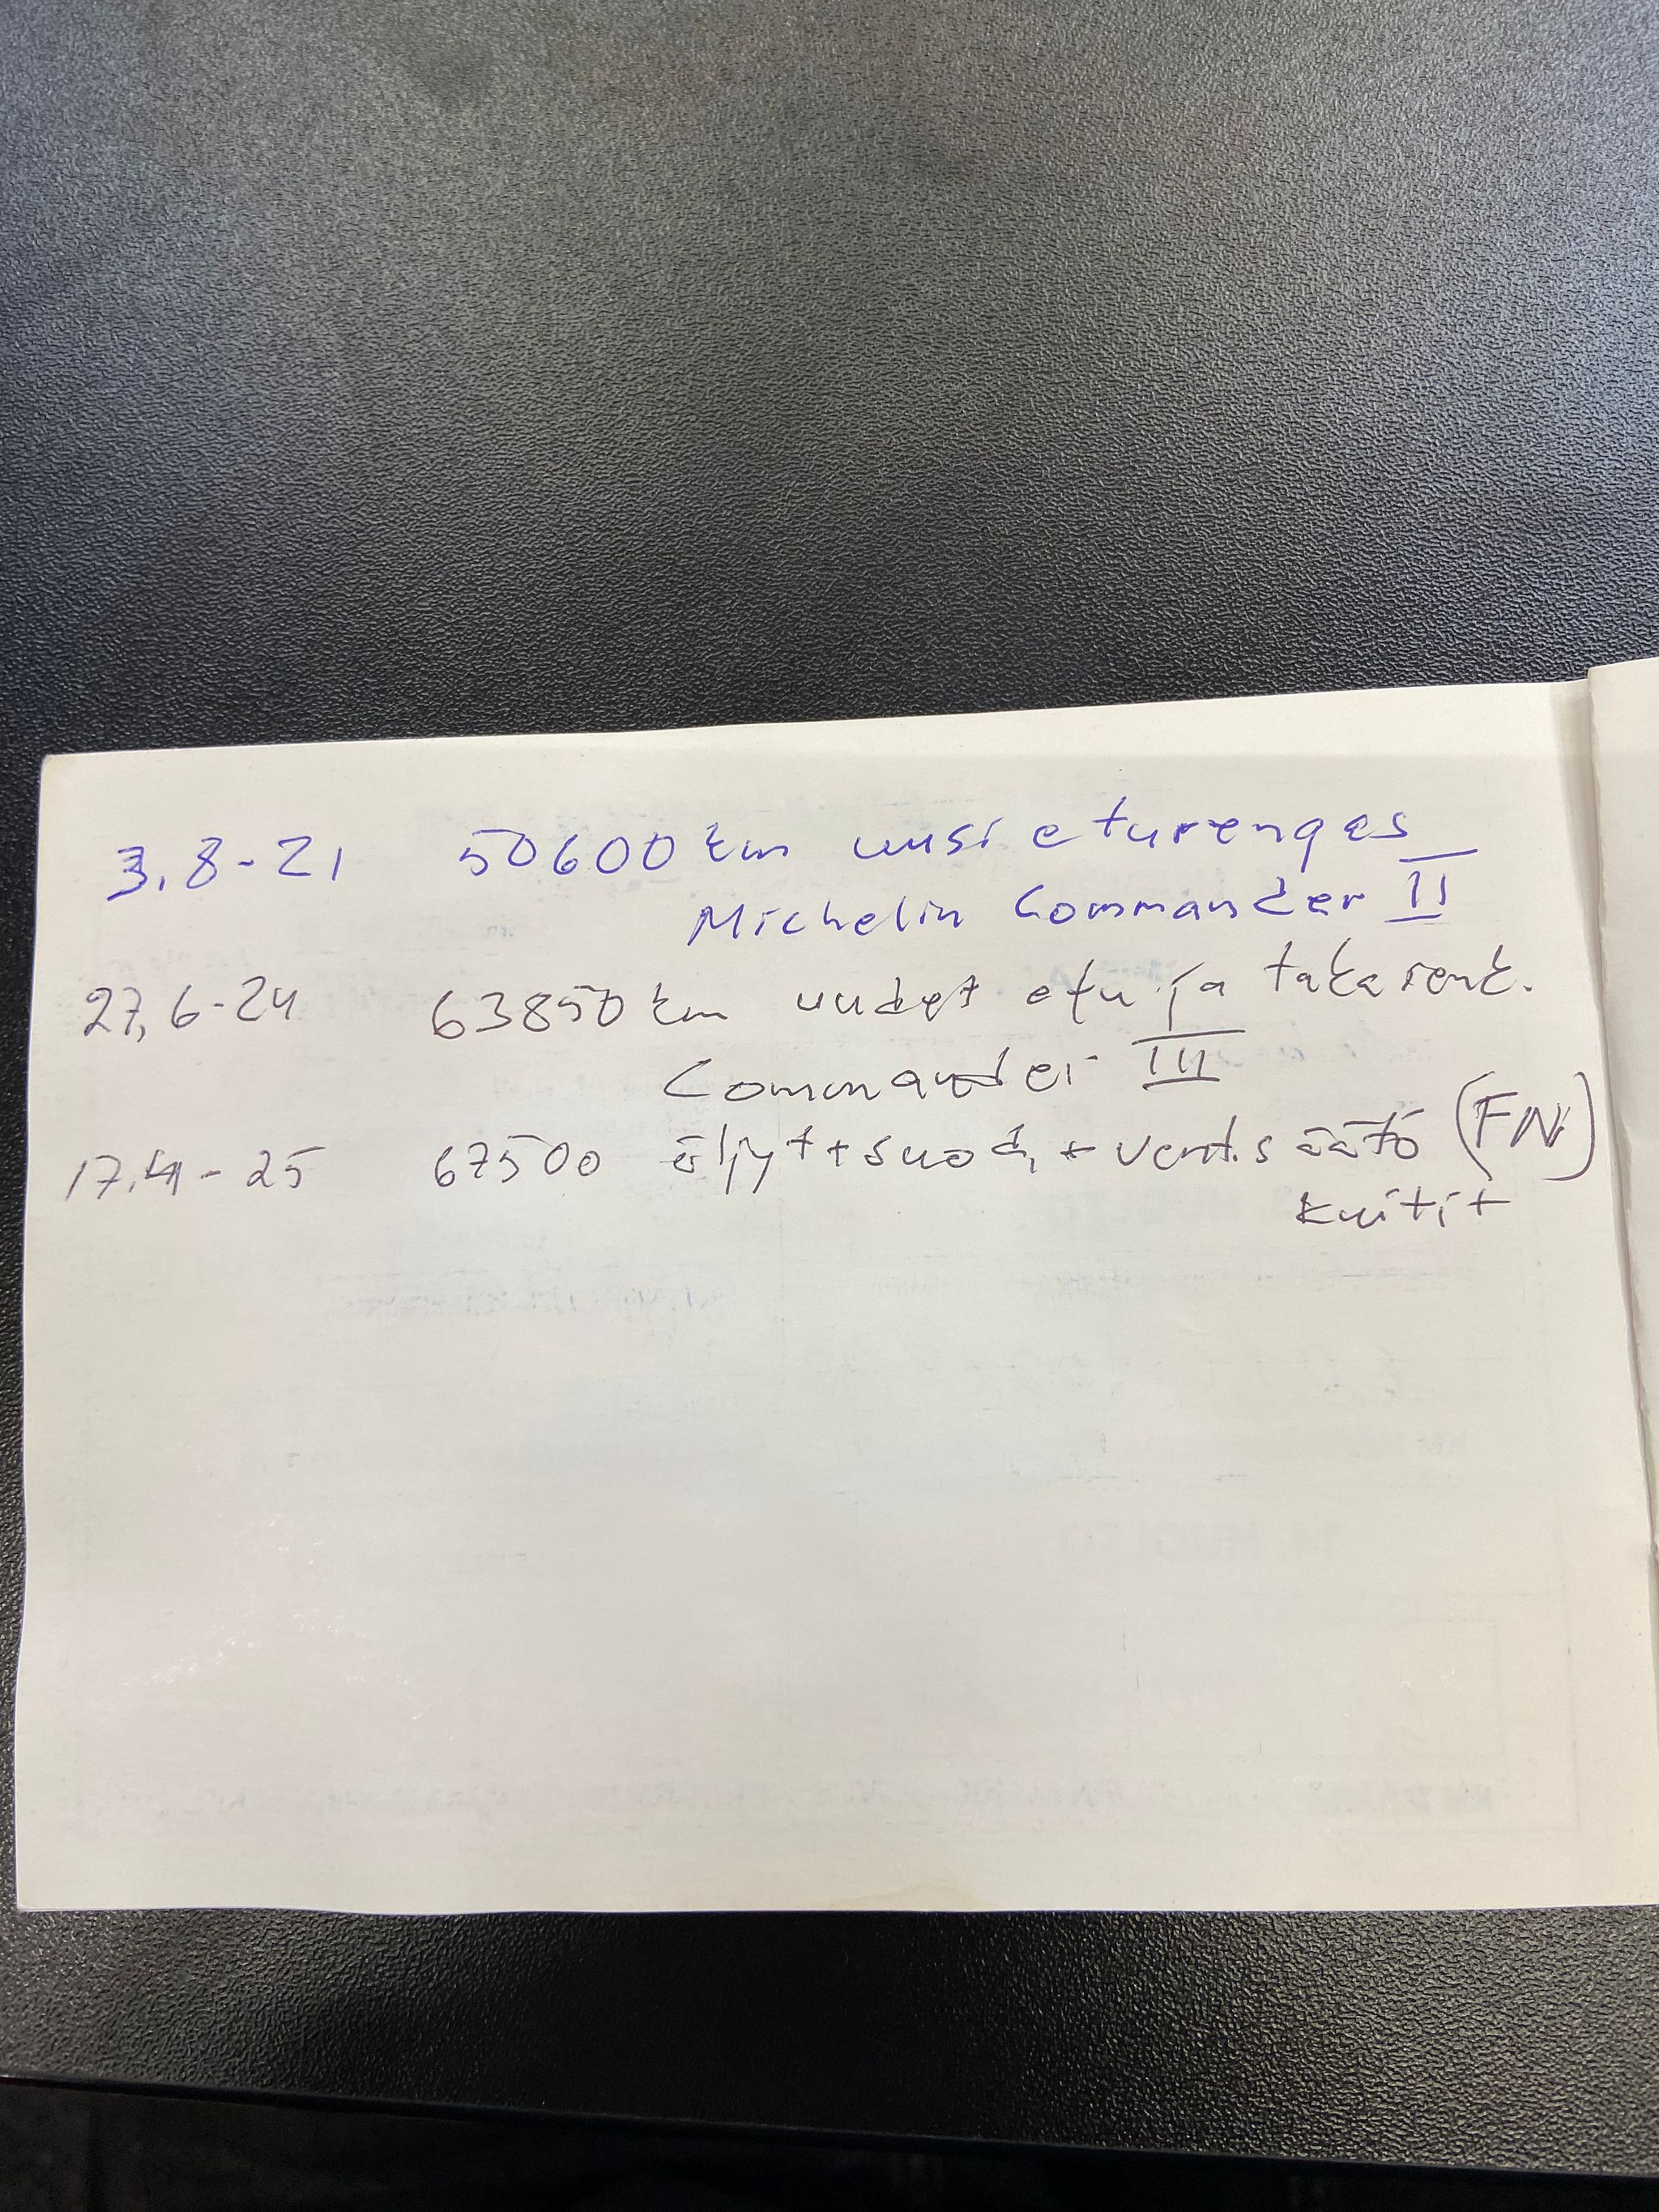 3.8-21 50600 km uusi eturengas
Michelin Commander II
27.6-24 63850 km uudet etu ja takarenk.
Commander III
17.4-25 67500 öljyt + suod. + vent.säätö (FN)
kuitit